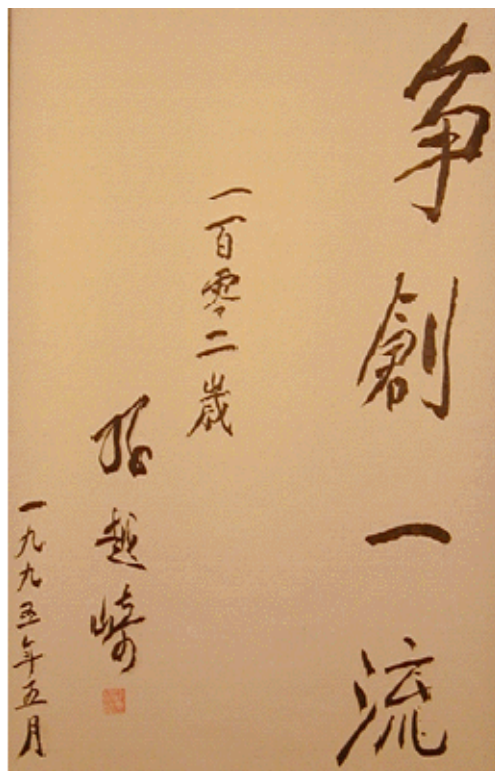 争創一流
一百零二歲
孫越崎
一九九五年五月